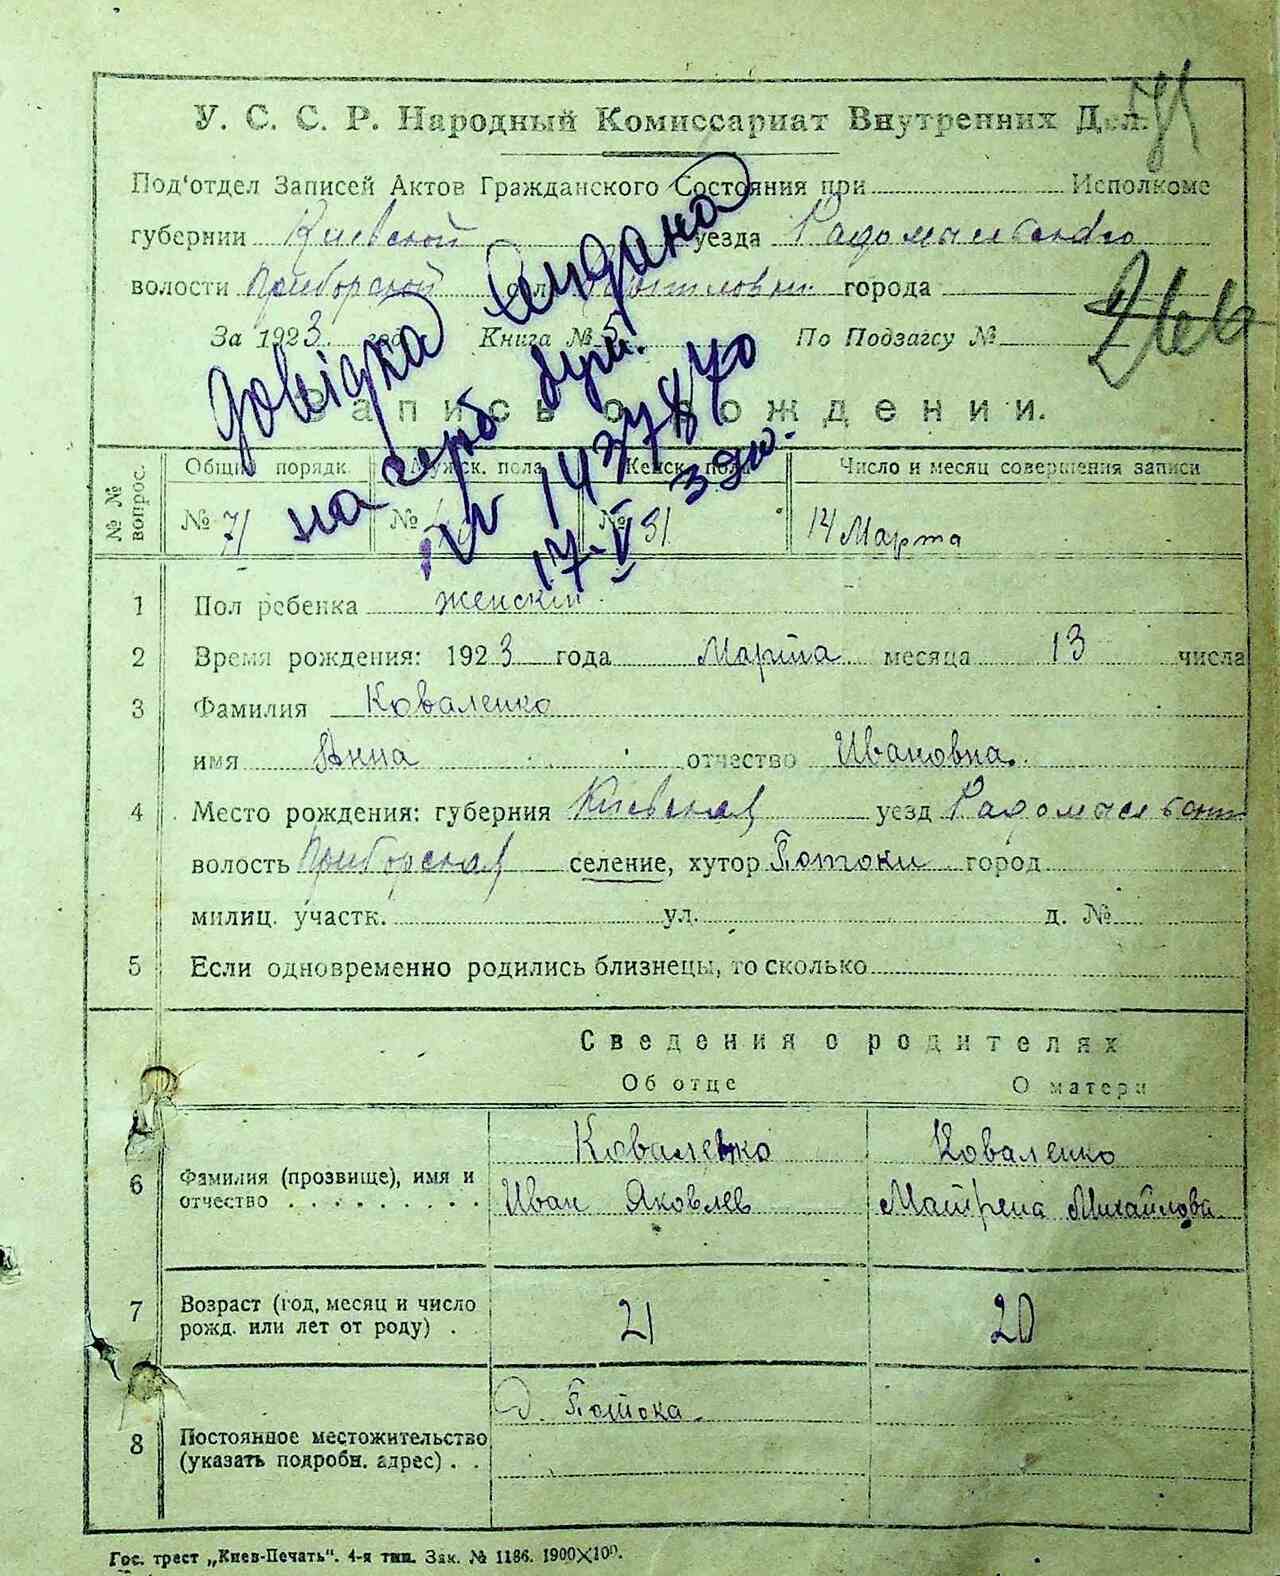 У. С. С. Р. Народный Комиссариат Внутренних Дел.
71
Под'отдел Записей Актов Гражданского Состояния при Исполкоме
губернии Киевской уезда Радомысльского
волости Приборской города
За 1923 год Книга № 5 По Подзагсу №
266
Запись о рождении.
Довідка видана
на герб бум.
IV 147787/70
17-V 39ю.
№№ вопрос.
Общий порядк. Мужск. пола Женск. пола Число и месяц совершения записи
№ 71 № № 31 14 Марта
1 Пол ребенка женский
2 Время рождения: 1923 года Марта месяца 13 числа
3 Фамилия Коваленко
имя Анна отчество Ивановна.
4 Место рождения: губерния Киевская уезд Радомысльский
волость Приборская селение, хутор Потоки город
милиц. участк. ул. д. №
5 Если одновременно родились близнецы, то сколько
Сведения о родителях
Об отце О матери
6 Фамилия (прозвище), имя и отчество
Коваленко Иван Яковлев
Коваленко Матрена Михайлова
7 Возраст (год, месяц и число рожд. или лет от роду)
21 20
8 Постоянное местожительство (указать подробн. адрес)
д. Потока.
Гос. трест „Киев-Печать". 4-я тип. Зак. № 1186. 1900×100.